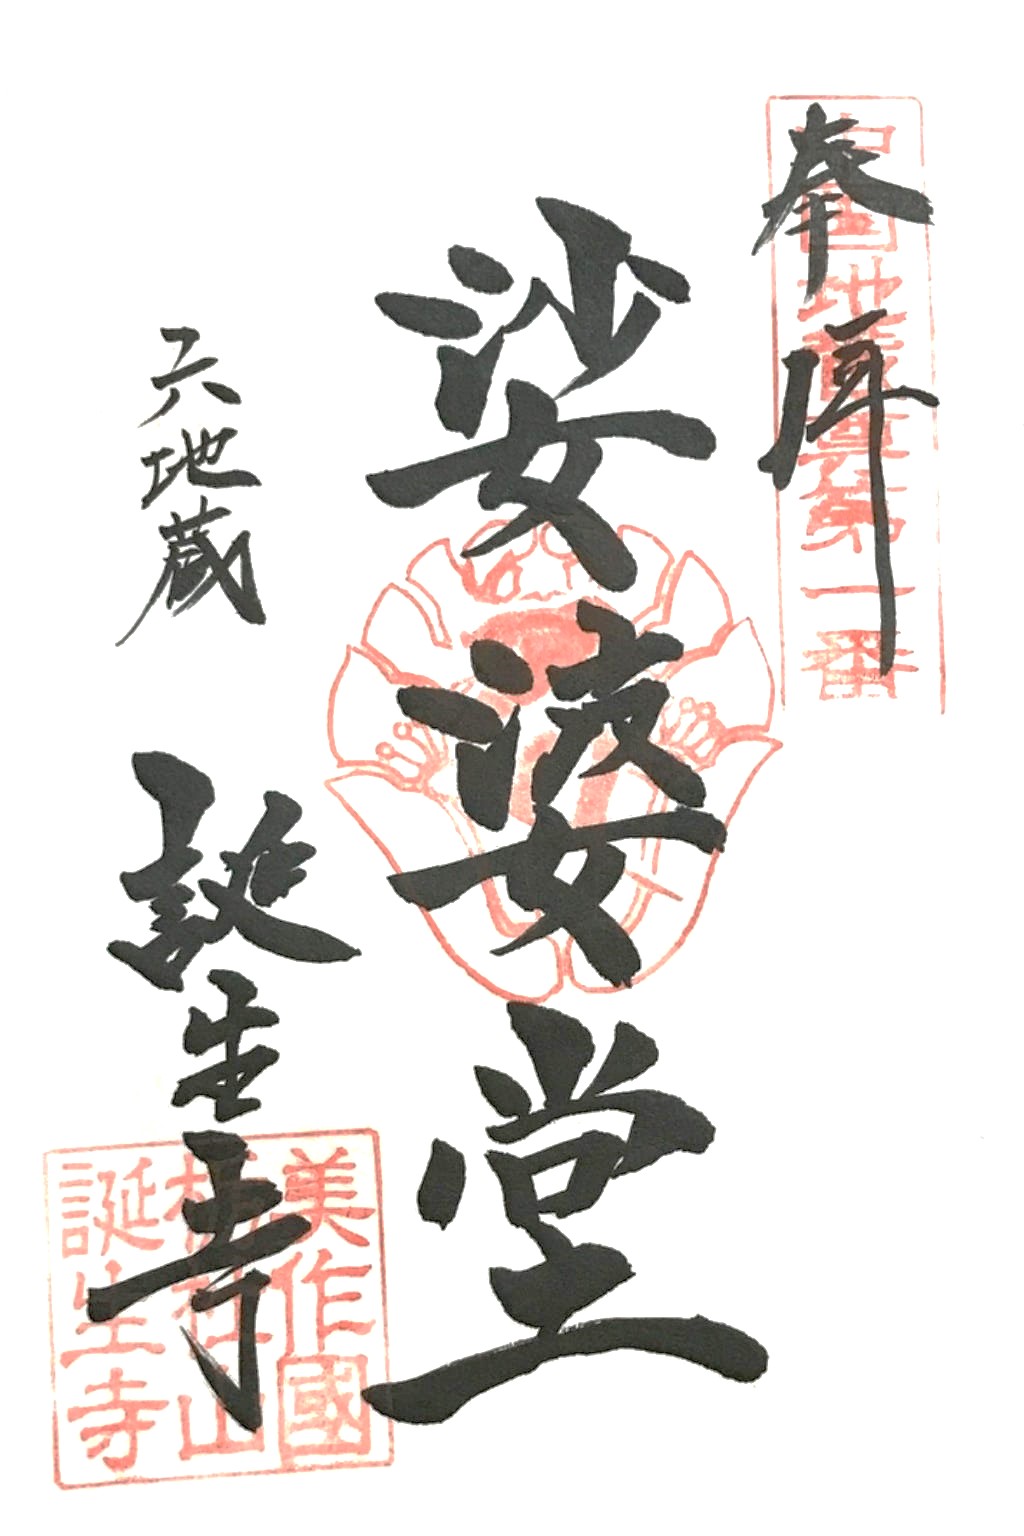 奉拝
中国地蔵尊第一番
娑婆堂
六地蔵
誕生寺
美作國
栃社山
誕生寺